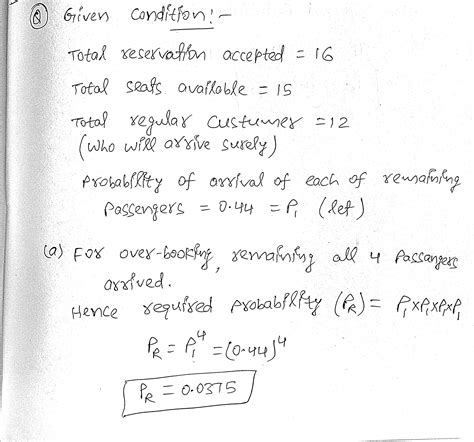 Q Given Condition! -
Total reservation accepted = 16
Total seats available = 15
Total regular Custumer = 12
(who will arrive surely)
Probability of arrival of each of remaining
Passengers = 0.44 = P₁ (let)
(a) For over-booking, remaining all 4 Passangers
arrived.
Hence required probability (P_R) = P₁×P₁×P₁×P₁
P_R = P₁⁴ = (0.44)⁴
P_R = 0.0375